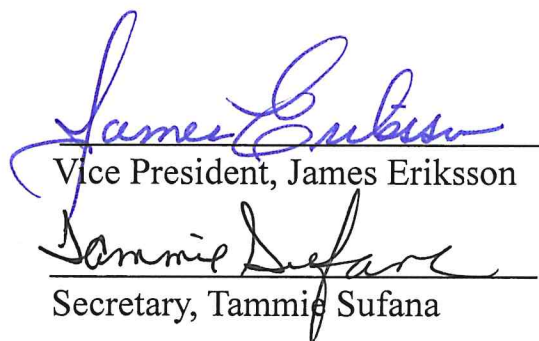 James Eriksson
Vice President, James Eriksson
Tammie Sufana
Secretary, Tammie Sufana